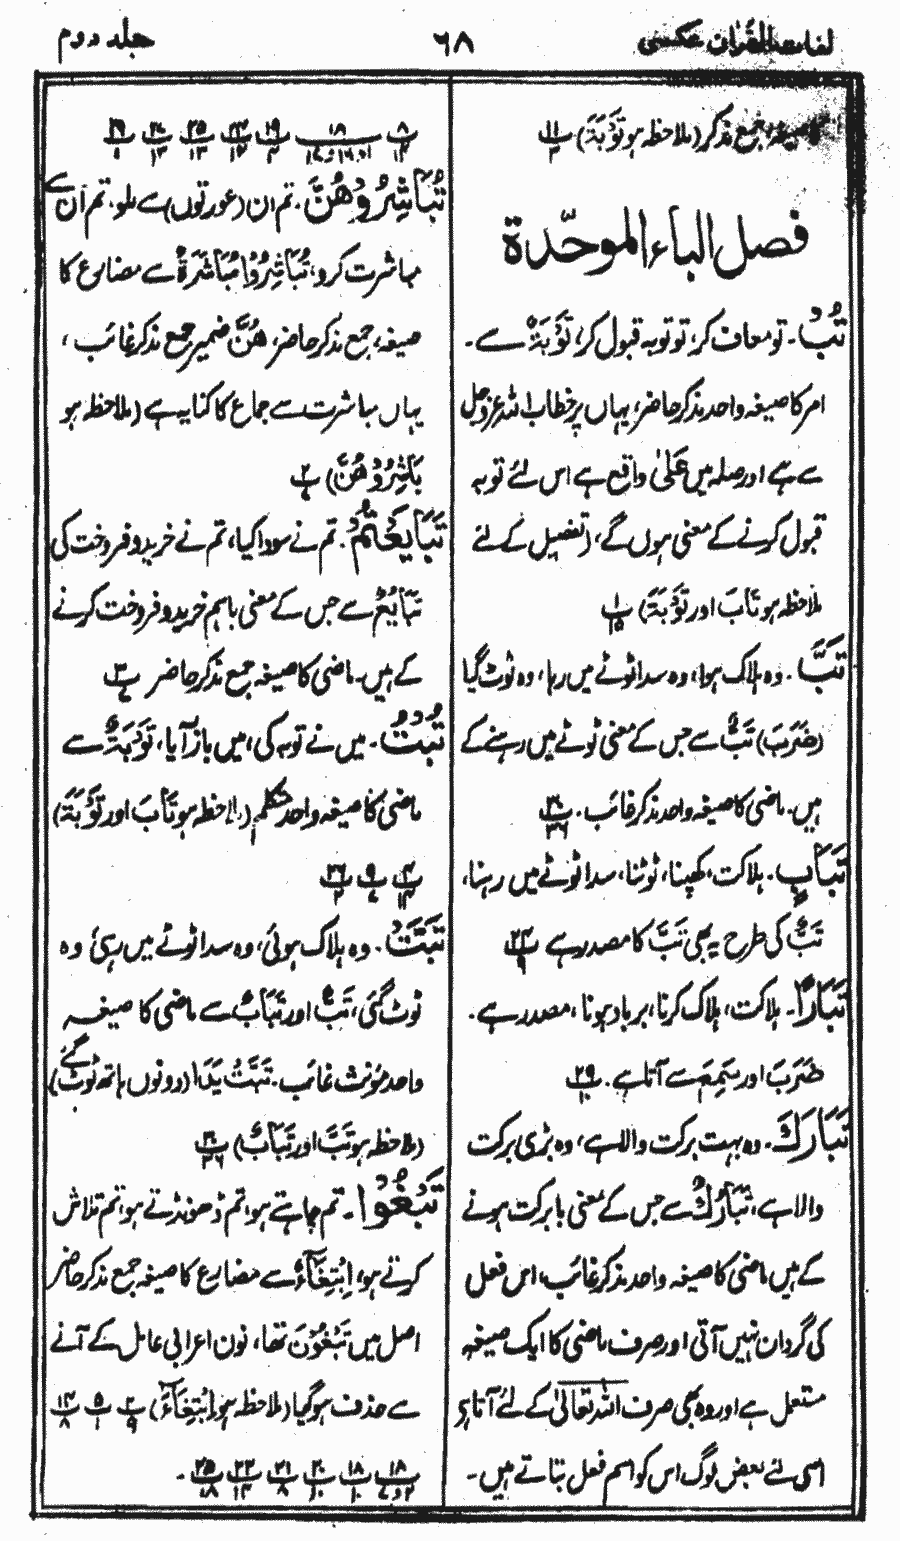 لغات القرآن عکسی
۶۸
جلد دوم
کا صیغہ، جمع مذکر (ملاحظہ ہو تَوْبَۃ) ۱۱/۳
فصل الباء الموحّدة
تُبْ۔ تو معاف کر، تو توبہ قبول کر، تَوْبَۃٌ سے۔
امر کا صیغہ واحد مذکر حاضر، یہاں پر خطاب اللہ عزوجل
سے ہے اور صلہ میں عَلیٰ واقع ہے اس لئے توبہ
قبول کرنے کے معنی ہوں گے، (تفصیل کے لئے
ملاحظہ ہو تَابَ اور تَوْبَۃ) ۱/۱۵
تَبَّ۔ وہ ہلاک ہوا، وہ سدا ٹوٹے میں رہا، وہ ٹوٹ گیا
(ضَرَبَ) تَبٌّ سے جس کے معنی ٹوٹے میں رہنے کے
ہیں۔ ماضی کا صیغہ واحد مذکر غائب۔ ۳۰/۳۶
تَبَابٍ۔ ہلاکت، کھپنا، ٹوٹنا، سدا ٹوٹے میں رہنا،
تَبٌّ کی طرح یہ بھی تَبَّ کا مصدر ہے ۲۴/۹
تَبَارًا۔ ہلاکت، ہلاک کرنا، برباد ہونا، مصدر ہے۔
ضَرَبَ اور سَمِعَ سے آتا ہے۔ ۲۹/۱۰
تَبَارَكَ۔ وہ بہت برکت والا ہے، وہ بڑی برکت
والا ہے، تَبَارُكٌ سے جس کے معنی بابرکت ہونے
کے ہیں ماضی کا صیغہ واحد مذکر غائب، اس فعل
کی گردان نہیں آتی اور صرف ماضی کا ایک صیغہ
مستعمل ہے اور وہ بھی صرف اللہ تعالیٰ کے لئے آتا ہے
اسی لئے بعض لوگ اس کو اسم فعل بتاتے ہیں۔
۸/۱۴ ۱۸/۱۶،۱۷،۱ ۱۹/۴ ۲۳/۱۲ ۲۵/۱۳ ۲۷/۱۳ ۲۹/۱
تُبَاشِرُوْهُنَّ۔ تم ان (عورتوں) سے ملو، تم ان سے
مباشرت کرو، تُبَاشِرُوْا مُبَاشَرَةٌ سے مضارع کا
صیغہ، جمع مذکر حاضر، هُنَّ ضمیر جمع مذکر غائب،
یہاں مباشرت سے جماع کا کنایہ ہے (ملاحظہ ہو
بَاشِرُوْهُنَّ) ۲/۷
تَبَايَعْتُمْ۔ تم نے سودا کیا، تم نے خرید و فروخت کی
تَبَايُعٌ سے جس کے معنی باہم خرید و فروخت کرنے
کے ہیں۔ ماضی کا صیغہ جمع مذکر حاضر ۳/۷
تُبْتُ۔ میں نے توبہ کی، میں باز آیا، تَوْبَۃٌ سے
ماضی کا صیغہ واحد متکلم، (ملاحظہ ہو تَابَ اور تَوْبَۃ)
۴/۱۴ ۹/۷ ۲۶/۲
تَبَّتْ۔ وہ ہلاک ہوئی، وہ سدا ٹوٹے میں رہی، وہ
ٹوٹ گئی، تَبٌّ اور تَبَابٌ سے ماضی کا صیغہ
واحد مؤنث غائب۔ تَبَّتْ يَدَا (دونوں ہاتھ ٹوٹ گئے)
(ملاحظہ ہو تَبَّ اور تَبَابٌ) ۳۰/۳۶
تَبْتَغُوْا۔ تم چاہتے ہو، تم ڈھونڈتے ہو، تم تلاش
کرتے ہو، اِبْتِغَاءٌ سے مضارع کا صیغہ جمع مذکر حاضر
اصل میں تَبْتَغُوْنَ تھا، نون اعرابی عامل کے آنے
سے حذف ہو گیا (ملاحظہ ہو اِبْتِغَآءَ) ۲/۹ ۵/۱ ۱۴/۸
۱۸/۲،۷ ۱۸/۱۰ ۲۰/۱۰ ۲۱/۸ ۲۲/۱۳ ۲۵/۱۸۔